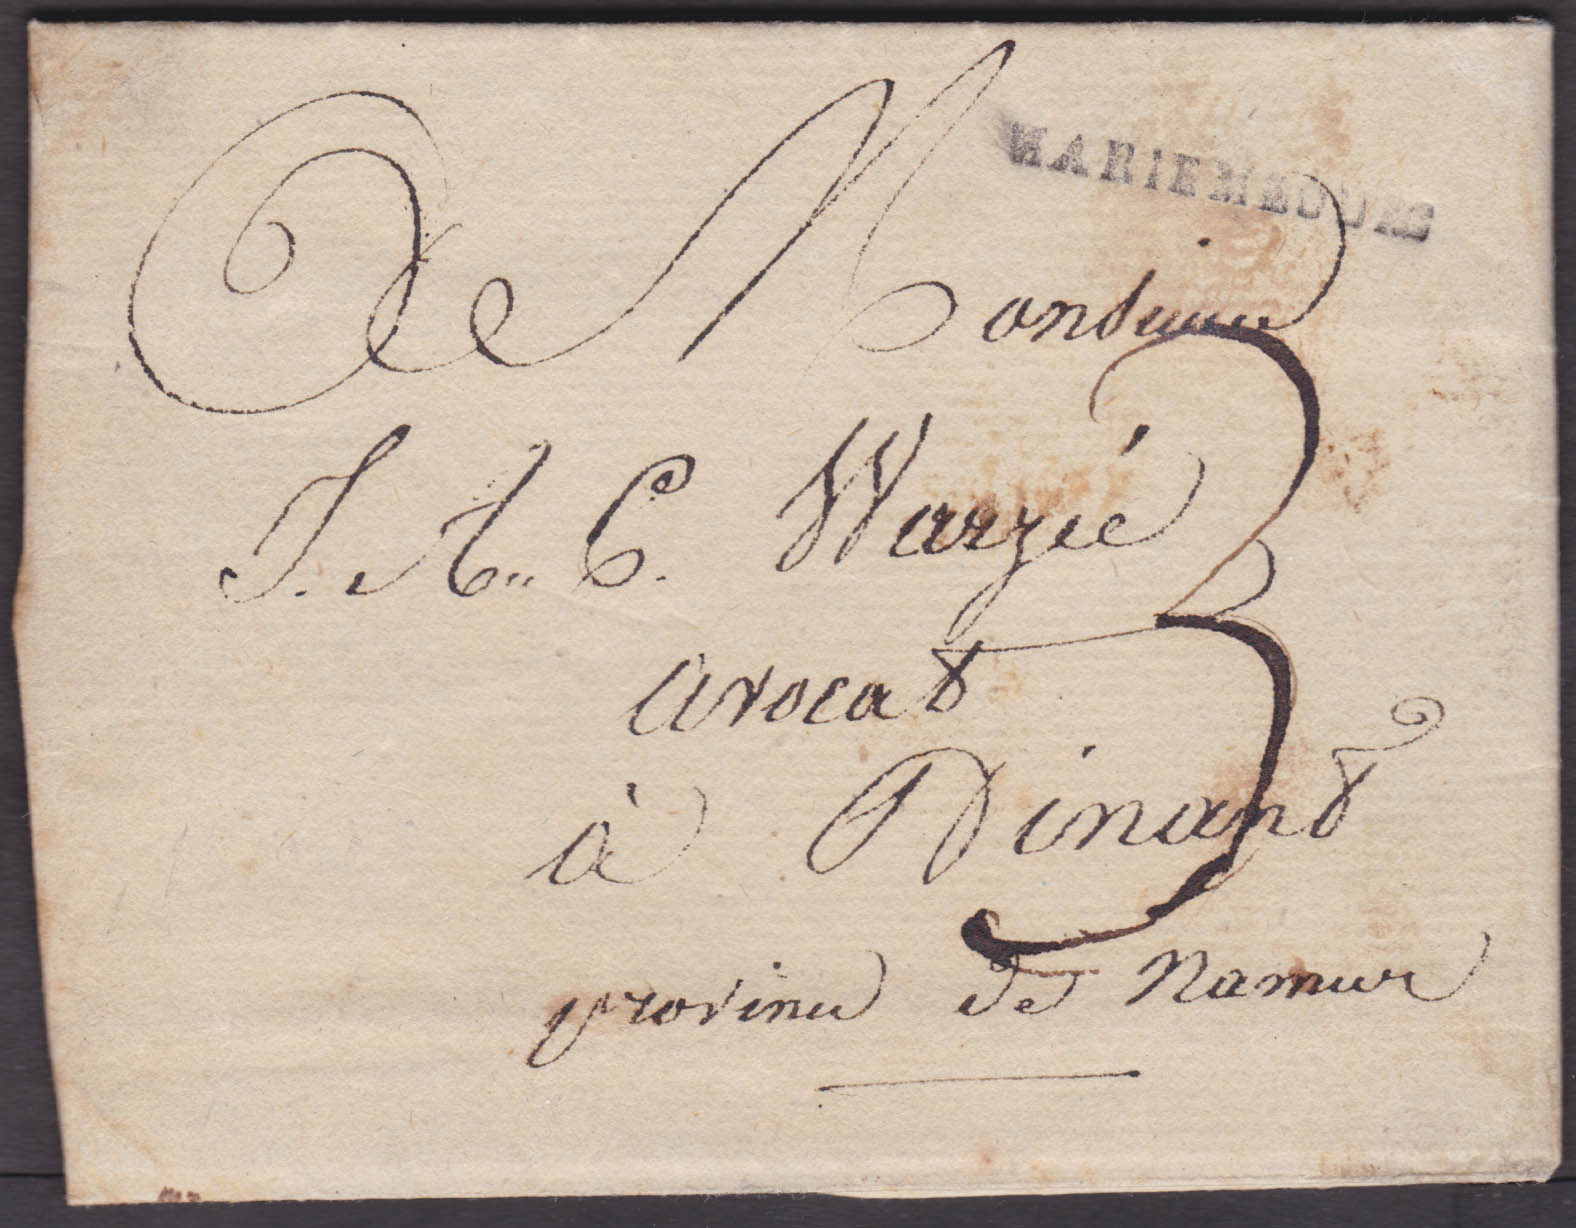 MARIEMBOURG
Monsieur
J. A. C. Warzée
avocat
à Dinant
province de Namur
3